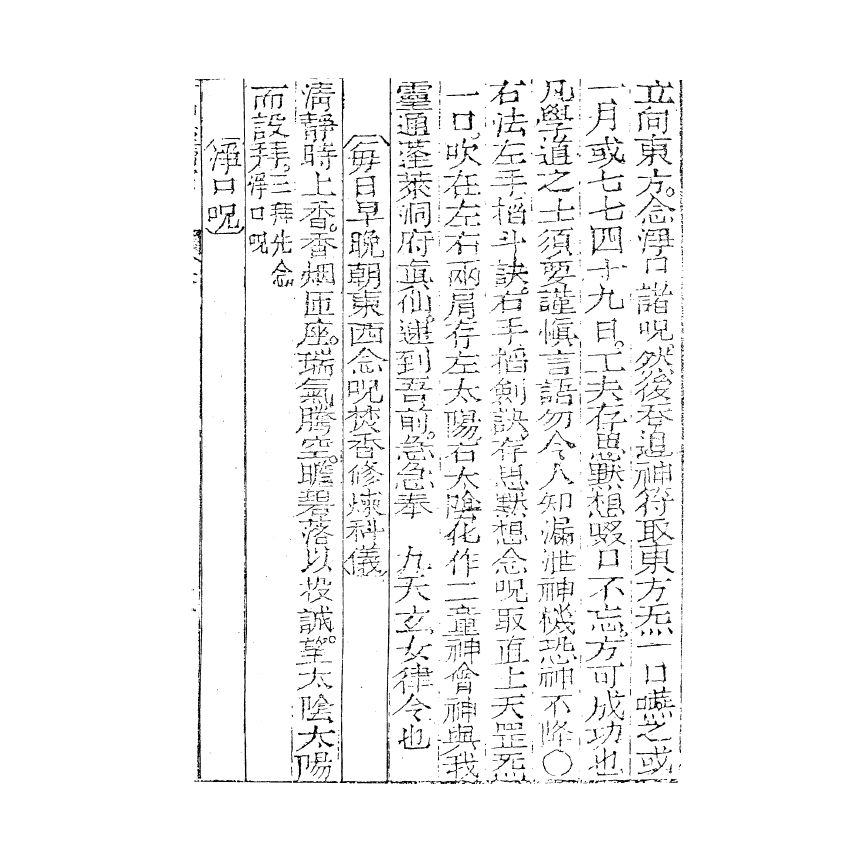 立向東方。念淨口諸呪然後吞追神符取東方炁一口嚥之或
一月或七七四十九日。工夫存思默想啜口不忘。方可成功也
凡學道之士須要謹慎言語勿令人知漏泄神機恐神不降〇
右法左手搯斗訣。右手搯劍訣。存思默想念呪取直上天罡炁
一口。吹在左右兩肩存左太陽。右太陰化作二童神會神與我
靈通蓬萊洞府眞仙。速到吾前。急急奉　九天玄女律令也
每日早晚朝東西念呪焚香修煉科儀
淸靜時上香。香烟匝座。瑞氣騰空。瞻碧落以投誠。望太陰太陽
而設拜。三拜先念淨口呪
淨口呪